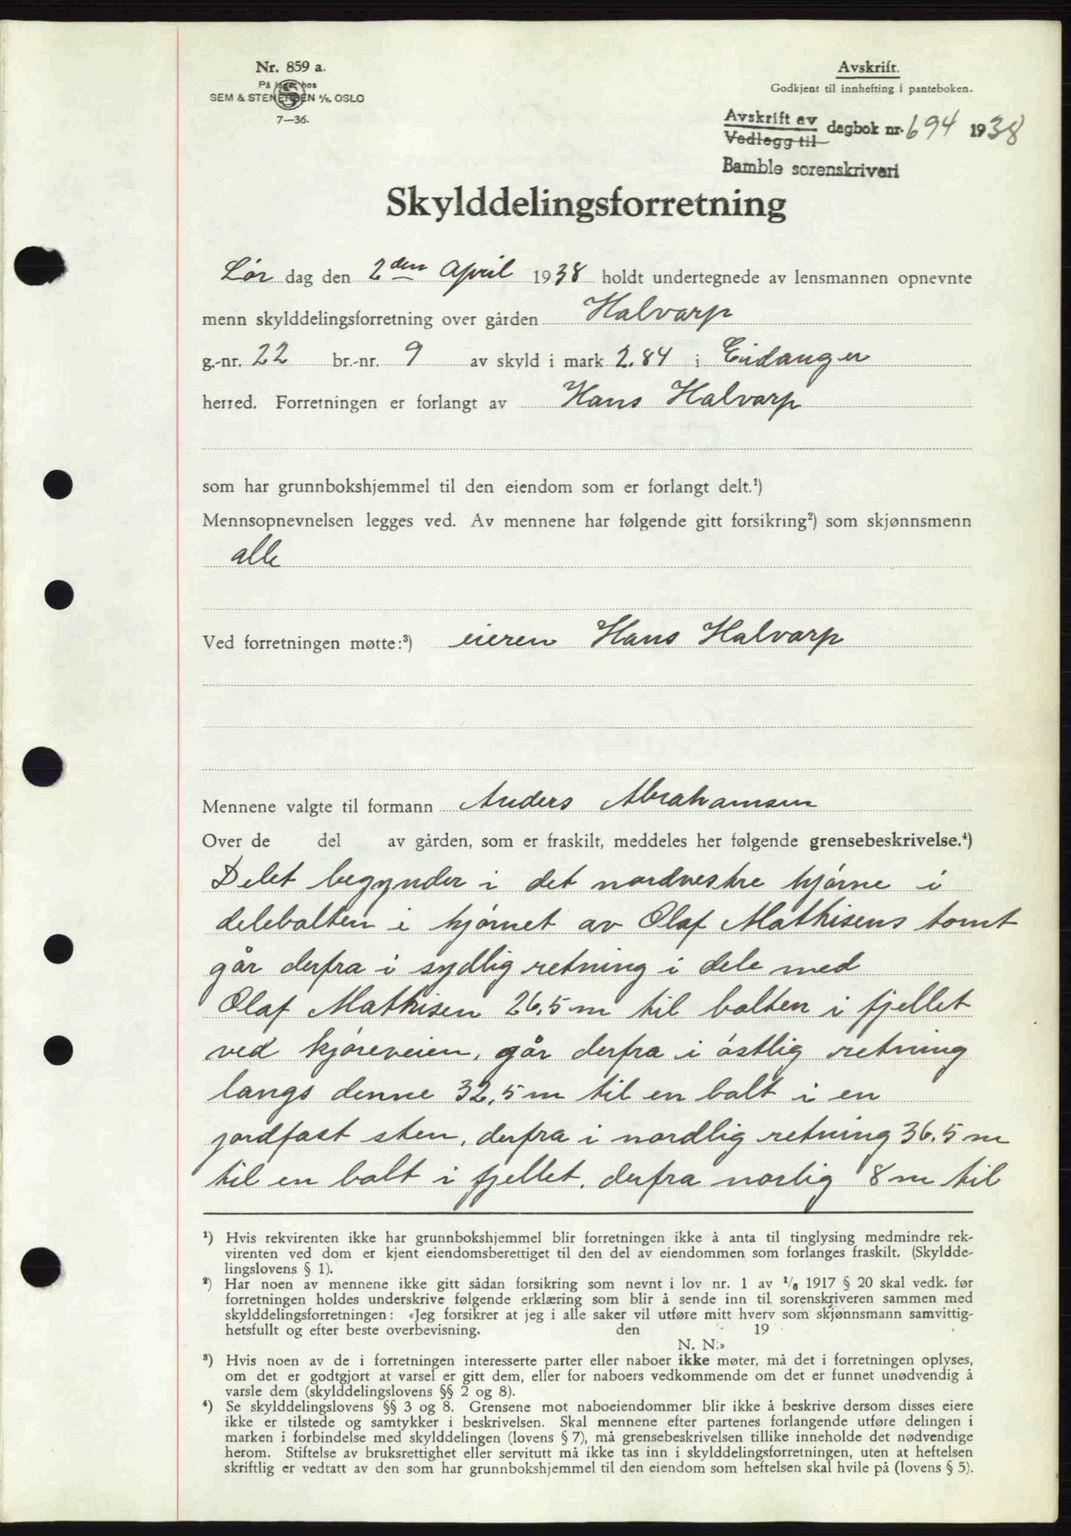 Nr. 859 a.
På lager hos
SEM & STENERSEN A/S, OSLO
7—36.
Avskrift.
Godkjent til innhefting i panteboken.
Avskrift av
Vedlegg til
dagbok nr. 694 1938
Bamble sorenskriveri
Skylddelingsforretning
Lør dag den 2den April 1938 holdt undertegnede av lensmannen opnevnte
menn skylddelingsforretning over gården Halvarp
g.-nr. 22 br.-nr. 9 av skyld i mark 2.84 i Eidanger
herred. Forretningen er forlangt av Hans Halvarp
som har grunnbokshjemmel til den eiendom som er forlangt delt.¹)
Mennsopnevnelsen legges ved. Av mennene har følgende gitt forsikring²) som skjønnsmenn
alle
Ved forretningen møtte:³) eieren Hans Halvarp
Mennene valgte til formann Anders Abrahamsen
Over de del av gården, som er fraskilt, meddeles her følgende grensebeskrivelse.⁴)
Delet begynder i det nordvestre hjørne i
delebolten i hjørnet av Olaf Mathisens tomt
går derfra i sydlig retning i dele med
Olaf Mathisen 26,5 m til bolten i fjellet
ved kjøreveien, går derfra i østlig retning
langs denne 32,5 m til en bolt i en
jordfast sten, derfra i nordlig retning 36.5 m
til en bolt i fjellet. derfra norlig 8 m til
¹) Hvis rekvirenten ikke har grunnbokshjemmel blir forretningen ikke å anta til tinglysing medmindre rek-
virenten ved dom er kjent eiendomsberettiget til den del av eiendommen som forlanges fraskilt. (Skyldde-
lingslovens § 1).
²) Har noen av mennene ikke gitt sådan forsikring som nevnt i lov nr. 1 av ¹/₆ 1917 § 20 skal vedk. før
forretningen holdes underskrive følgende erklæring som blir å sende inn til sorenskriveren sammen med
skylddelingsforretningen: «Jeg forsikrer at jeg i alle saker vil utføre mitt hverv som skjønnsmann samvittig-
hetsfullt og efter beste overbevisning. den 19
N. N.»
³) Hvis noen av de i forretningen interesserte parter eller naboer ikke møter, må det i forretningen oplyses,
om det er godtgjort at varsel er gitt dem, eller for naboers vedkommende om det er funnet unødvendig å
varsle dem (skylddelingslovens §§ 2 og 8).
⁴) Se skylddelingslovens §§ 3 og 8. Grensene mot naboeiendommer blir ikke å beskrive dersom disses eiere
ikke er tilstede og samtykker i beskrivelsen. Skal mennene efter partenes forlangende utføre delingen i
marken i forbindelse med skylddelingen (lovens § 7), må grensebeskrivelsen tillike inneholde det nødvendige
herom. Stiftelse av bruksrettighet eller servitutt må ikke tas inn i skylddelingsforretningen, uten at heftelsen
skriftlig er vedtatt av den som har grunnbokshjemmel til den eiendom som heftelsen skal hvile på (lovens § 5).